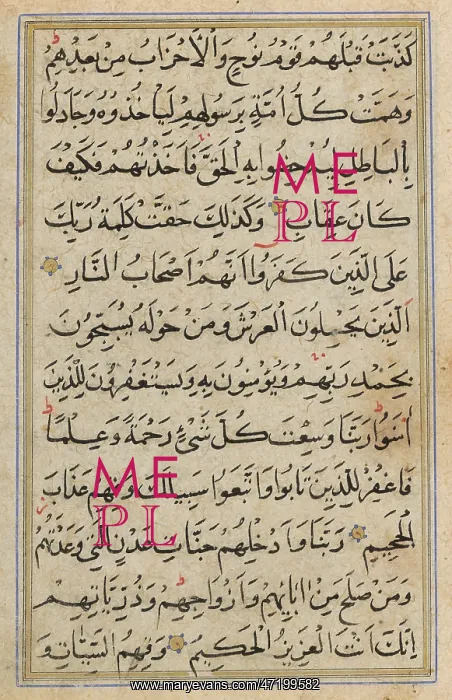 كَذَّبَتْ قَبْلَهُمْ قَوْمُ نُوحٍ وَالْأَحْزَابُ مِنْ بَعْدِهِمْ
وَهَمَّتْ كُلُّ أُمَّةٍ بِرَسُولِهِمْ لِيَأْخُذُوهُ وَجَادَلُوا
بِالْبَاطِلِ لِيُدْحِضُوا بِهِ الْحَقَّ فَأَخَذْتُهُمْ فَكَيْفَ
كَانَ عِقَابِ وَكَذَلِكَ حَقَّتْ كَلِمَةُ رَبِّكَ
عَلَى الَّذِينَ كَفَرُوا أَنَّهُمْ أَصْحَابُ النَّارِ
الَّذِينَ يَحْمِلُونَ الْعَرْشَ وَمَنْ حَوْلَهُ يُسَبِّحُونَ
بِحَمْدِ رَبِّهِمْ وَيُؤْمِنُونَ بِهِ وَيَسْتَغْفِرُونَ لِلَّذِينَ
آمَنُوا رَبَّنَا وَسِعْتَ كُلَّ شَيْءٍ رَحْمَةً وَعِلْمًا
فَاغْفِرْ لِلَّذِينَ تَابُوا وَاتَّبَعُوا سَبِيلَكَ وَقِهِمْ عَذَابَ
الْجَحِيمِ رَبَّنَا وَأَدْخِلْهُمْ جَنَّاتِ عَدْنٍ الَّتِي وَعَدْتَهُمْ
وَمَنْ صَلَحَ مِنْ آبَائِهِمْ وَأَزْوَاجِهِمْ وَذُرِّيَّاتِهِمْ
إِنَّكَ أَنْتَ الْعَزِيزُ الْحَكِيمُ وَقِهِمُ السَّيِّئَاتِ وَ
ME
PL
ME
PL
www.maryevans.com/47199582